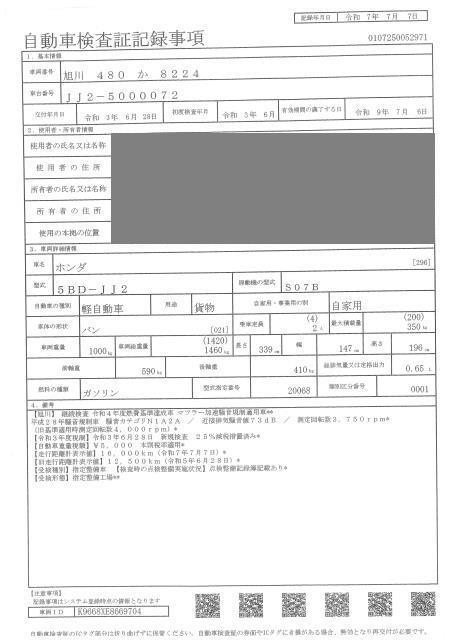 記録年月日 令和 7年 7月 7日
自動車検査証記録事項 0107250052971
1．基本情報
車両番号 旭川 480 か 8224
車台番号 JJ2-5000072
交付年月日 令和 3年 6月 28日 初度検査年月 令和 3年 6月 有効期間の満了する日 令和 9年 7月 6日
2．使用者・所有者情報
使用者の氏名又は名称
使用者の住所
所有者の氏名又は名称
所有者の住所
使用の本拠の位置
3．車両詳細情報
車名 ホンダ [296]
型式 5BD-JJ2 原動機の型式 S07B
自動車の種別 軽自動車 用途 貨物 自家用・事業用の別 自家用
車体の形状 バン [021] 乗車定員 (4) 2人 最大積載量 (200) 350kg
車両重量 1000kg 車両総重量 (1420) 1460kg 長さ 339cm 幅 147cm 高さ 196cm
前軸重 590kg 後軸重 410kg 総排気量又は定格出力 0.65 L
燃料の種類 ガソリン 型式指定番号 20068 類別区分番号 0001
4．備考
【旭川】 継続検査 令和4年度燃費基準達成車 マフラー加速騒音規制適用車**
平成28年騒音規制車 騒音カテゴリN1A2A ／ 近接排気騒音値73dB ／ 測定回転数3，750rpm*
(旧基準適用時測定回転数4，000rpm)*
【令和3年度税制】令和3年6月28日 新規検査 25%減税措置済み*
【自動車重量税額】¥5，000 本則税率適用*
【走行距離計表示値】16，000km(令和7年7月7日)
【旧走行距離計表示値】12，500km(令和5年6月28日)*
【受検種別】指定整備車 【検査時の点検整備実施状況】点検整備記録簿記載あり*
【受検形態】指定整備工場**
【注意事項】
記録事項はシステム登録時点の情報となります
車両ID K9668XE8669704
自動車検査証のICタグ部分は折り曲げずに保管してください。自動車検査証の券面やICタグにき損がある場合、無効となり再交付が必要です。